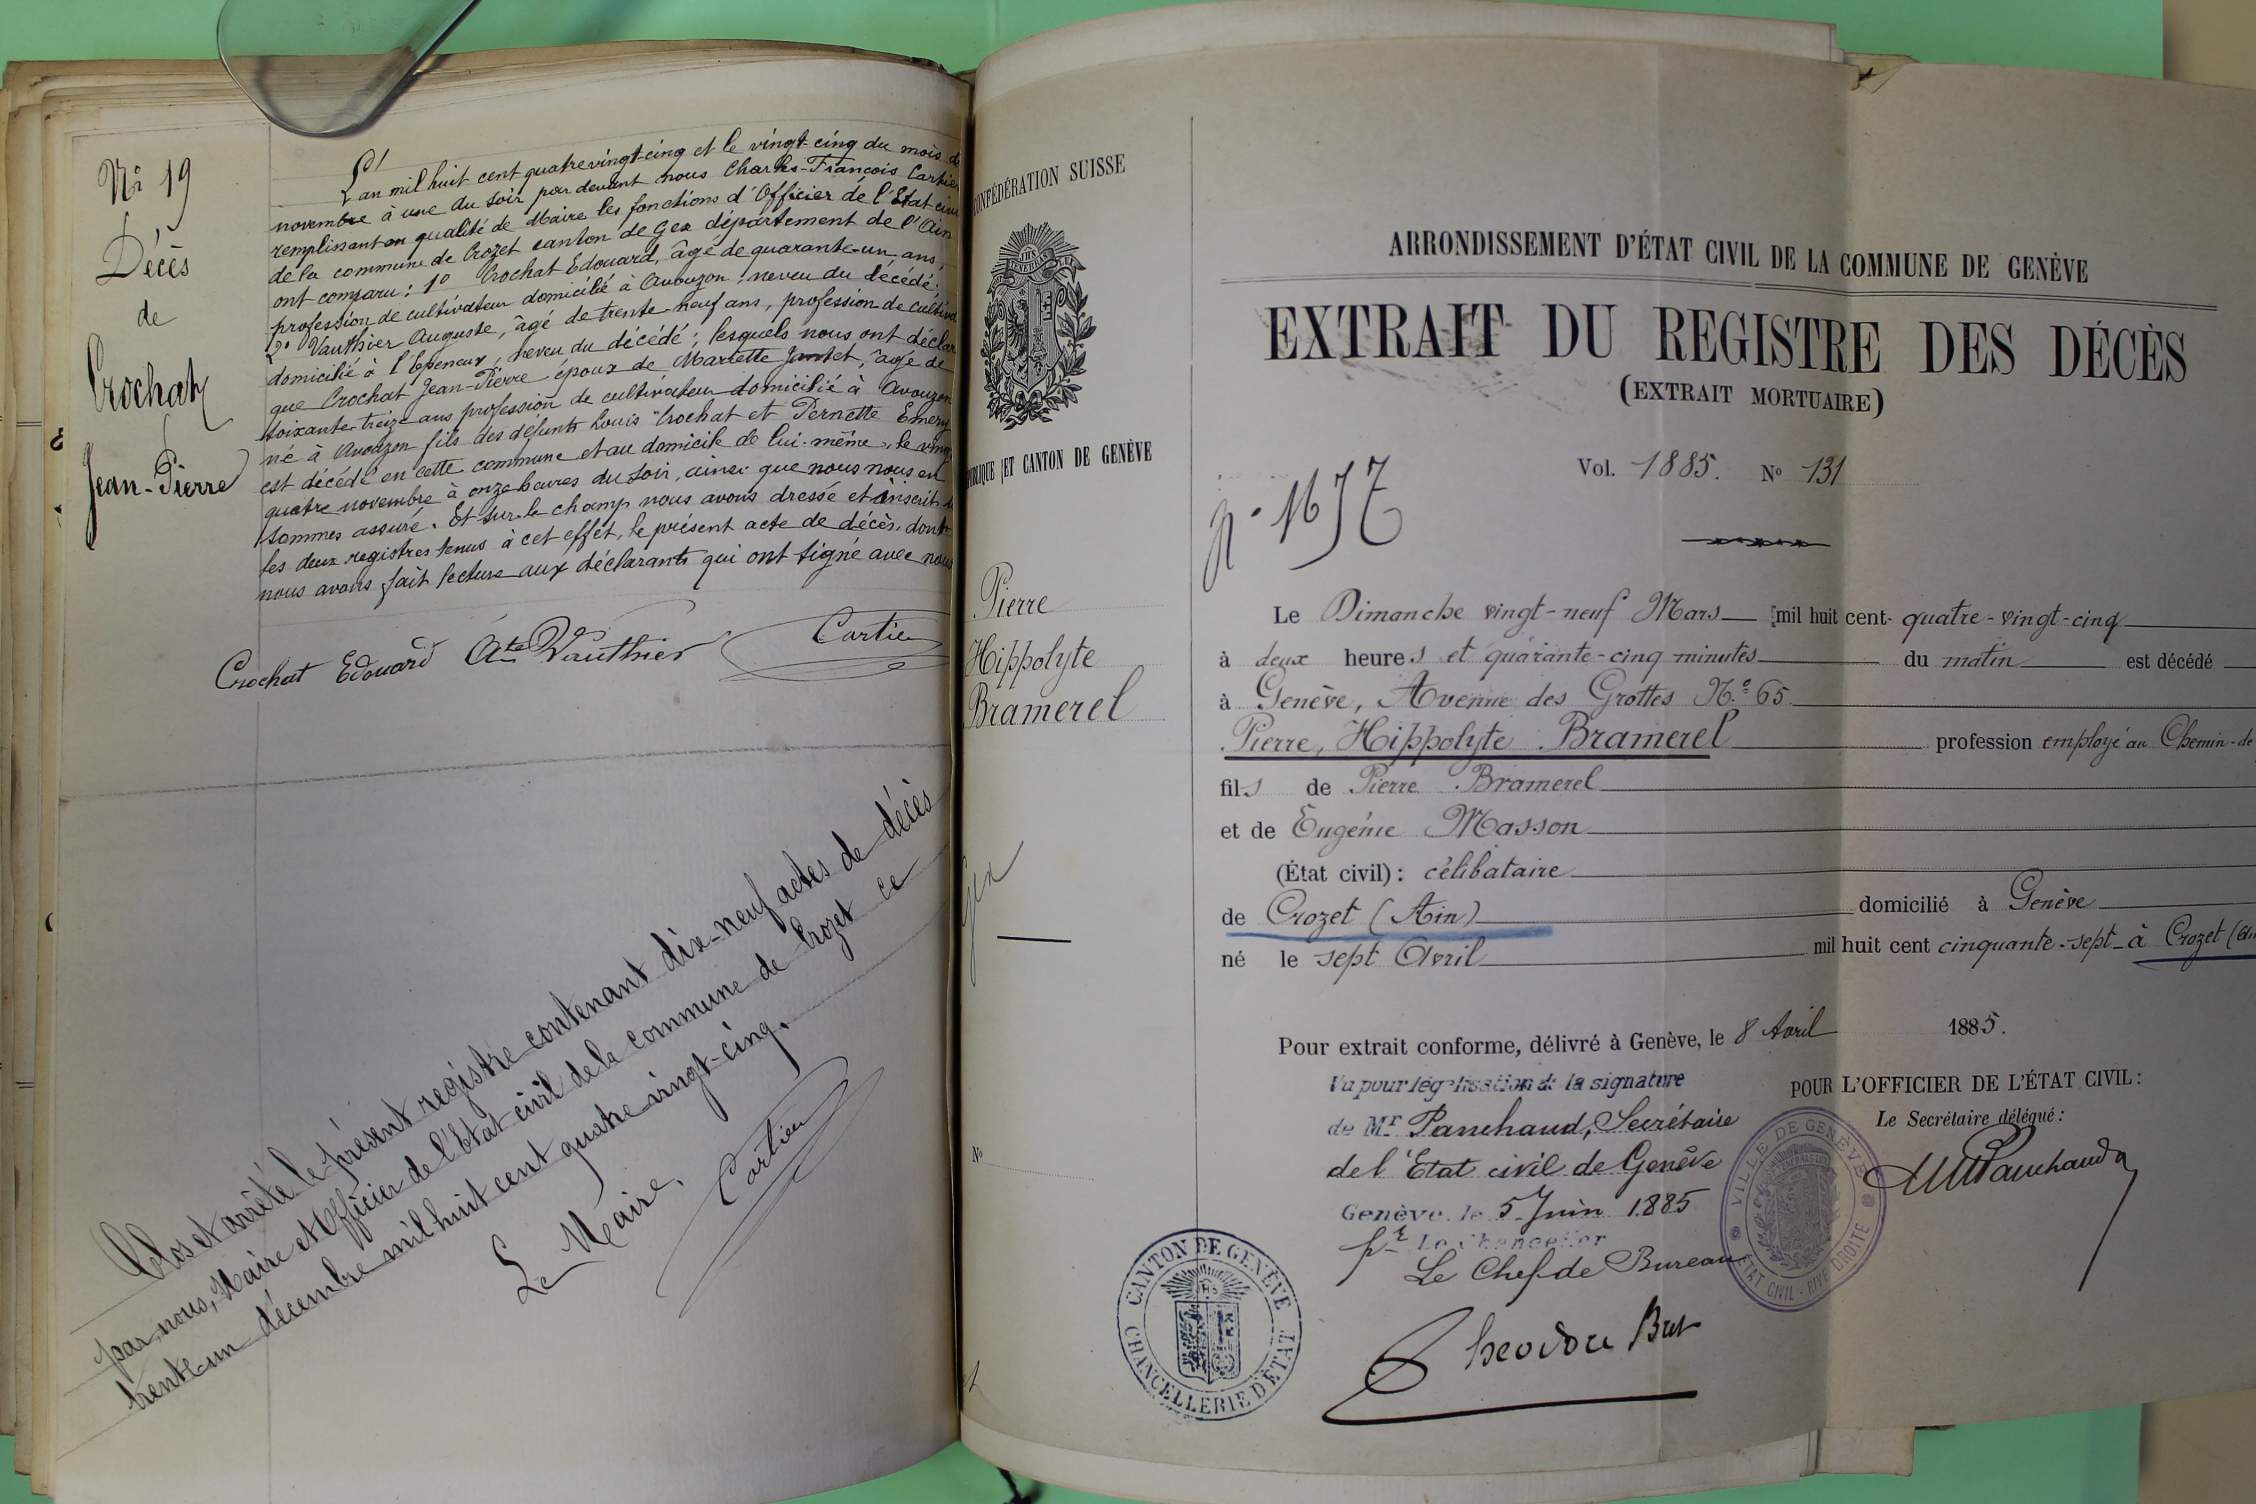 No 19
Décès
de
Crochat
Jean-Pierre
L'an mil huit cent quatre vingt-cinq et le vingt-cinq du mois de
novembre à une du soir par devant nous Charles-François Cartier
remplissant en qualité de Maire les fonctions d'Officier de l'Etat civil
de la commune de Crozet canton de Gex département de l'Ain
ont comparu: 1o Crochat Edouard, âgé de quarante-un ans,
profession de cultivateur domicilié à Avouzon, neveu du décédé.
2o Vauthier Auguste, âgé de trente neuf ans, profession de cultiva
domicilié à l'Epeneux, neveu du décédé; lesquels nous ont déclar
que Crochat Jean-Pierre époux de Mariette Jantet, âgé de
soixante-treize ans profession de cultivateur domicilié à Avouzon
né à Avouzon fils des défunts Louis Crochat et Pernette Emery
est décédé en cette commune et au domicile de lui-même, le vingt
quatre novembre à onze heures du soir, ainsi que nous nous en
sommes assuré. Et sur-le champ nous avons dressé et inscrit
les deux registres tenus à cet effet, le présent acte de décès, dont
nous avons fait lecture aux déclarants qui ont signé avec nous
Crochat Edouard Ate Vauthier Cartier
Clos et arrêté le présent registre contenant dix-neuf actes de décès
par nous, Maire et Officier de l'Etat civil de la commune de Crozet ce
trente un décembre mil huit cent quatre vingt-cinq.
Le Maire,
Cartier
CONFÉDÉRATION SUISSE
PUBLIQUE ET CANTON DE GENÈVE
Pierre
Hippolyte
Bramerel
Gex
No
ARRONDISSEMENT D'ÉTAT CIVIL DE LA COMMUNE DE GENÈVE
EXTRAIT DU REGISTRE DES DÉCÈS
(EXTRAIT MORTUAIRE)
Vol. 1885. No 131
Le Dimanche vingt-neuf Mars mil huit cent-quatre-vingt-cinq
à deux heures et quarante-cinq minutes du matin est décédé
à Genève, Avenue des Grottes No 65
Pierre, Hippolyte Bramerel profession employé au Chemin-de
fils de Pierre Bramerel
et de Eugénie Masson
(État civil): célibataire
de Crozet (Ain) domicilié à Genève
né le sept Avril mil huit cent cinquante-sept à Crozet (Ain
Pour extrait conforme, délivré à Genève, le 8 Avril 1885.
Vu pour légalisation de la signature
de Mr Panchaud, Secrétaire
de l'Etat civil de Genève
Genève, le 5 Juin 1885
pr Le Chancelier
Le Chef de Bureau
Theodore Bret
POUR L'OFFICIER DE L'ÉTAT CIVIL:
Le Secrétaire délégué:
Panchaud
VILLE DE GENÈVE
ETAT CIVIL - RIVE DROITE
CANTON DE GENÈVE
CHANCELLERIE D'ÉTAT